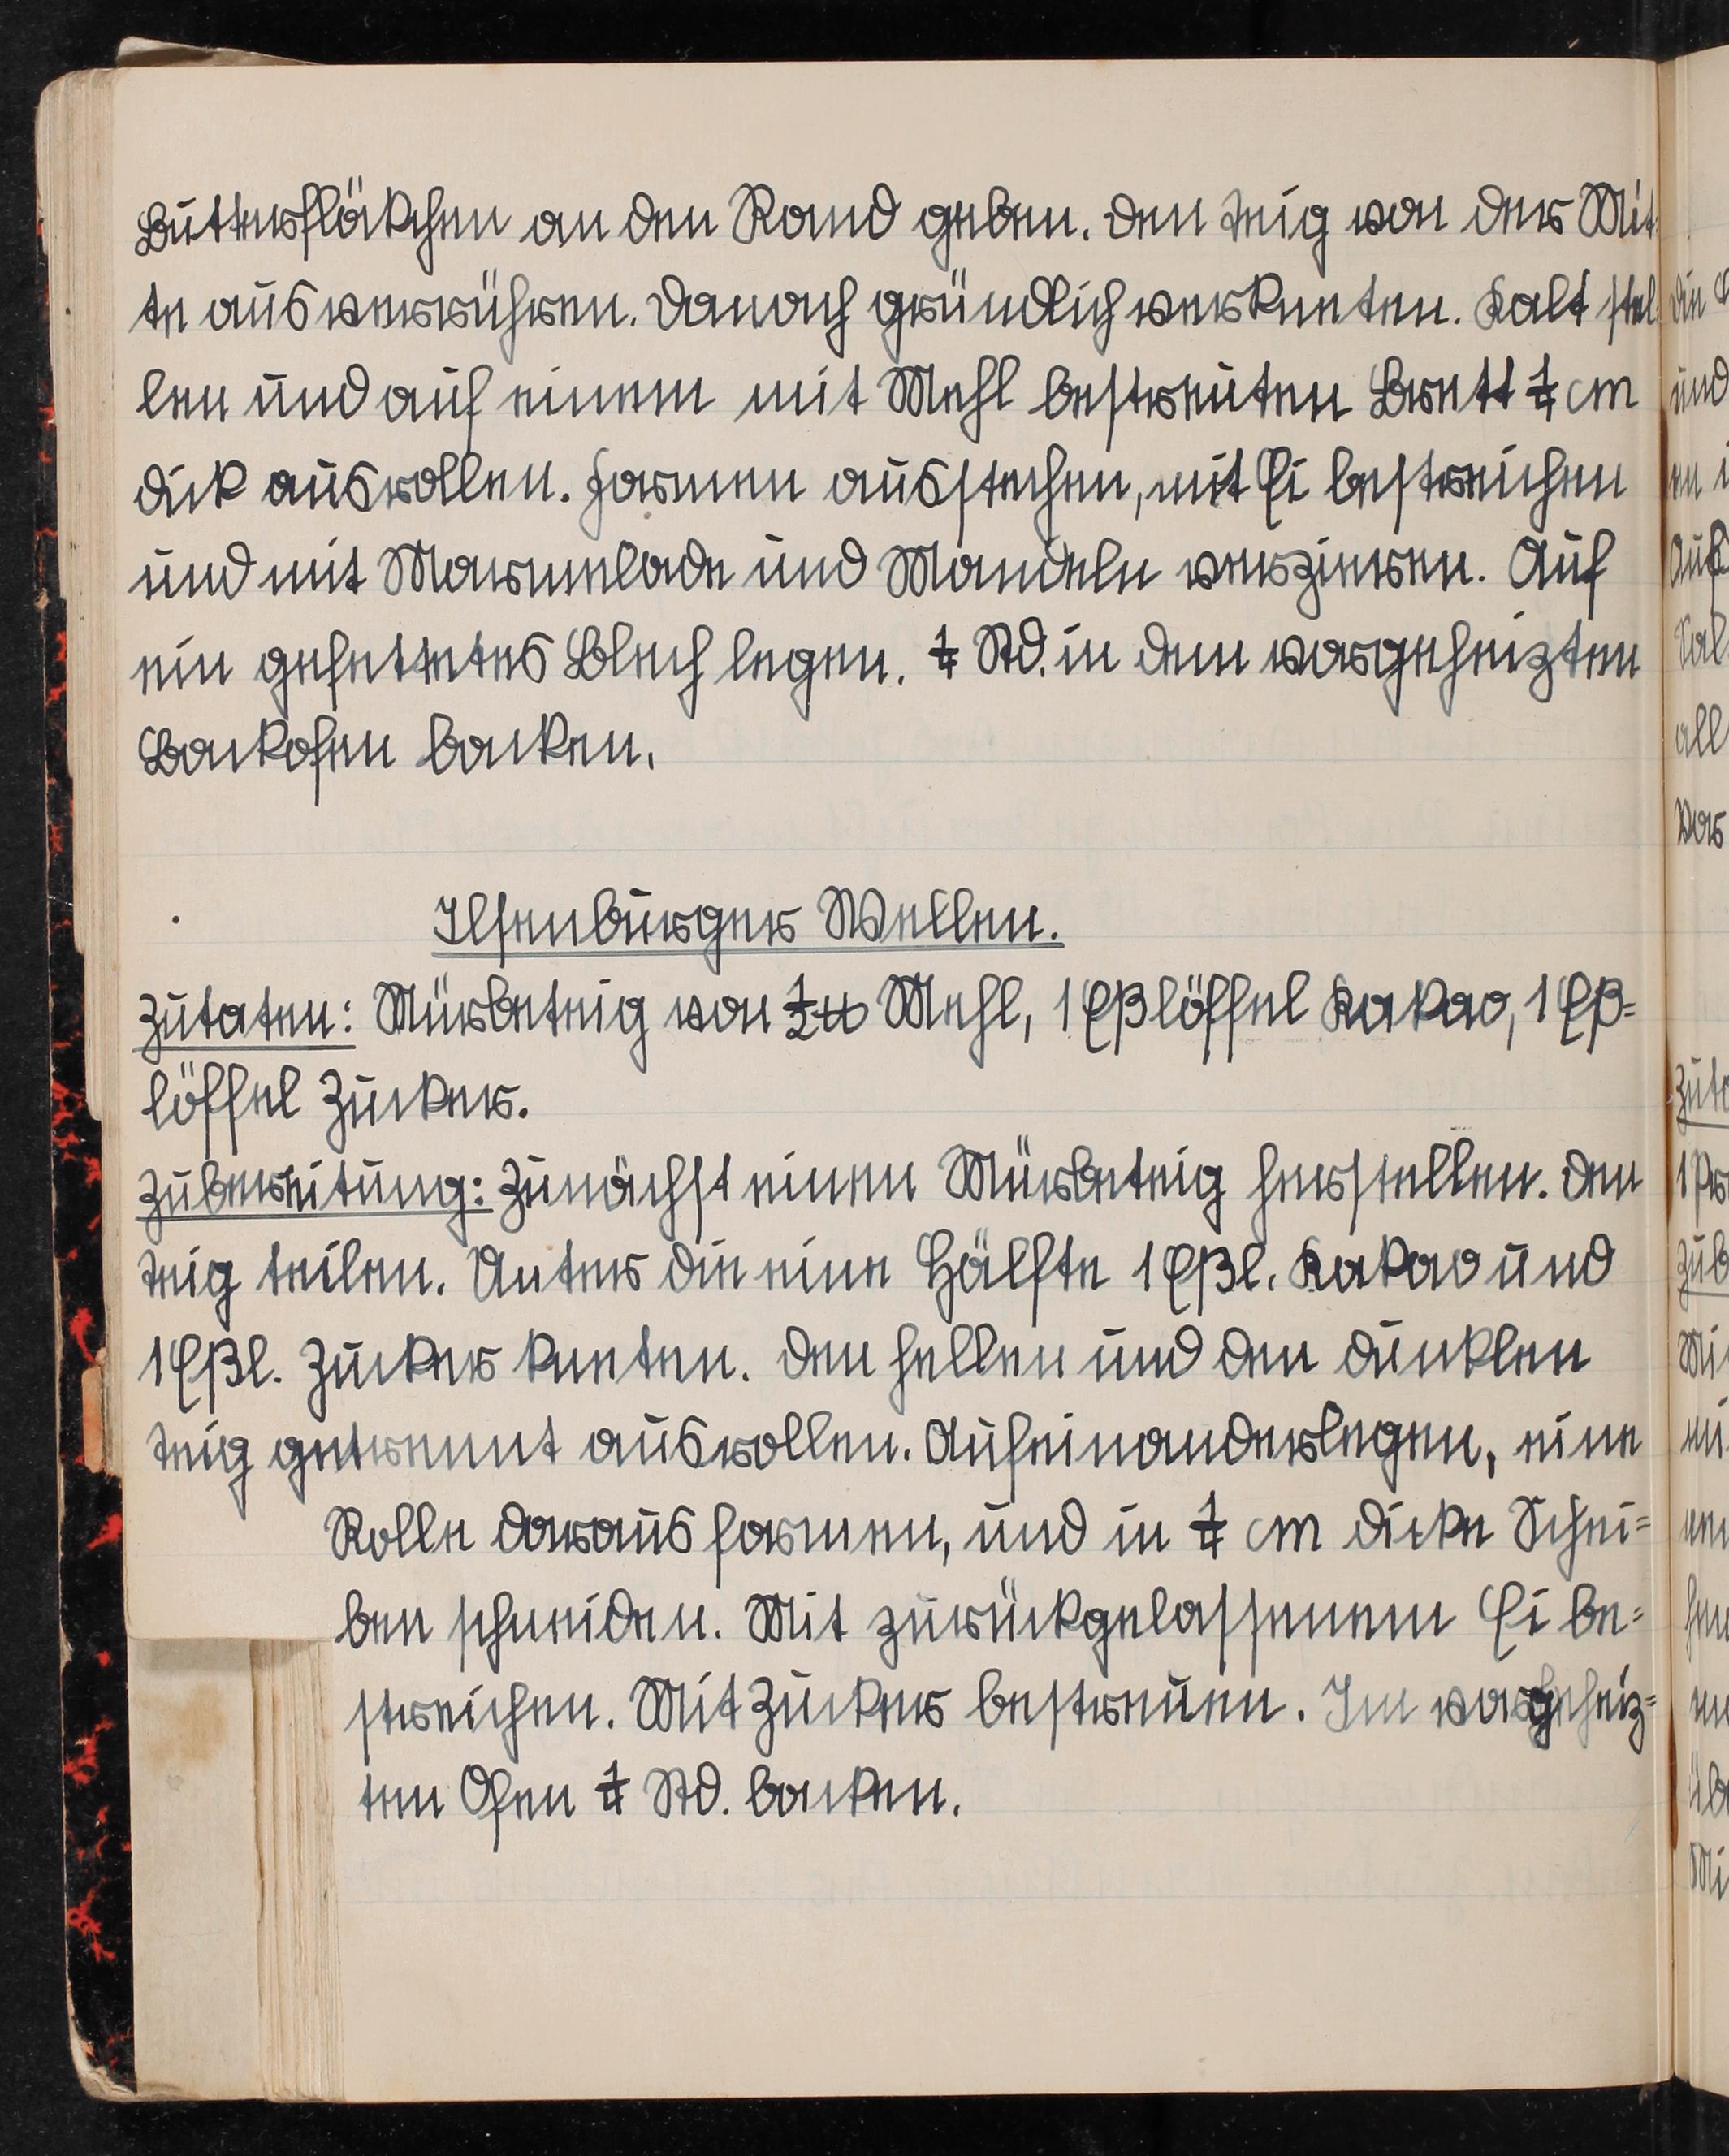 Butterflökchen an den Rand geben. Den Teig von der Mit-
te aus verrühren. Danach gründlich verkneten. Kalt stel-
len und auf einem mit Mehl bestreuten Brett ¼ cm
dick ausrollen. Formen ausstechen, mit Ei bestreichen
und mit Marmelade und Mandeln verzieren. Auf
ein gefettetes Blech legen. ¼ Std. in dem vorgeheizten
Backofen backen.
Ilsenburger Wellen.
Zutaten: Mürbeteig von ½ ℔ Mehl, 1 Eßlöffel Kakao, 1 Eß-
löffel Zucker.
Zubereitung: Zunächst einen Mürbeteig herstellen. Den
Teig teilen. Unter die eine Hälfte 1 Eßl. Kakao und
1 Eßl. Zucker kneten. Den hellen und den dunklen
Teig getrennt ausrollen. Aufeinanderlegen, eine
Rolle daraus formen, und in ¼ cm dicke Schei-
ben schneiden. Mit zurückgelassenem Ei be-
streichen. Mit Zucker bestreuen. Im vorgeheiz-
ten Ofen ¼ Std. backen.